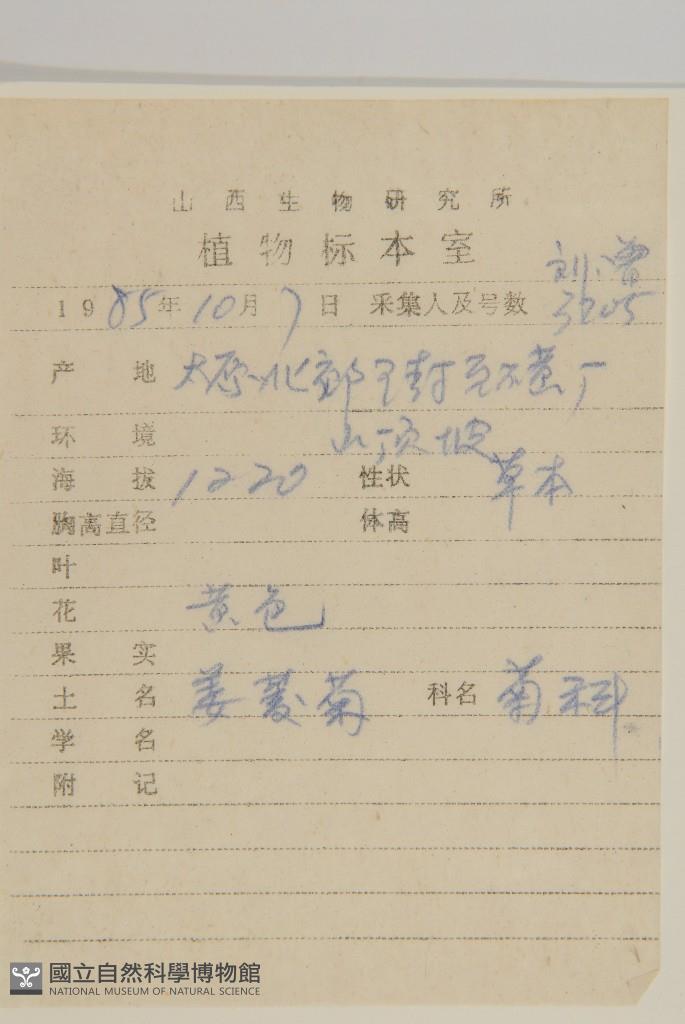 山西生物研究所
植物标本室
刘、曾
1985年10月7日 采集人及号数 3205
产地 太原北郊王封 厂
环境 山顶坡
海拔 1220 性状 草本
胸高直径 体高
叶
花 黄色
果实
土名 菊 科名 菊科
学名
附记
國立自然科學博物館
NATIONAL MUSEUM OF NATURAL SCIENCE